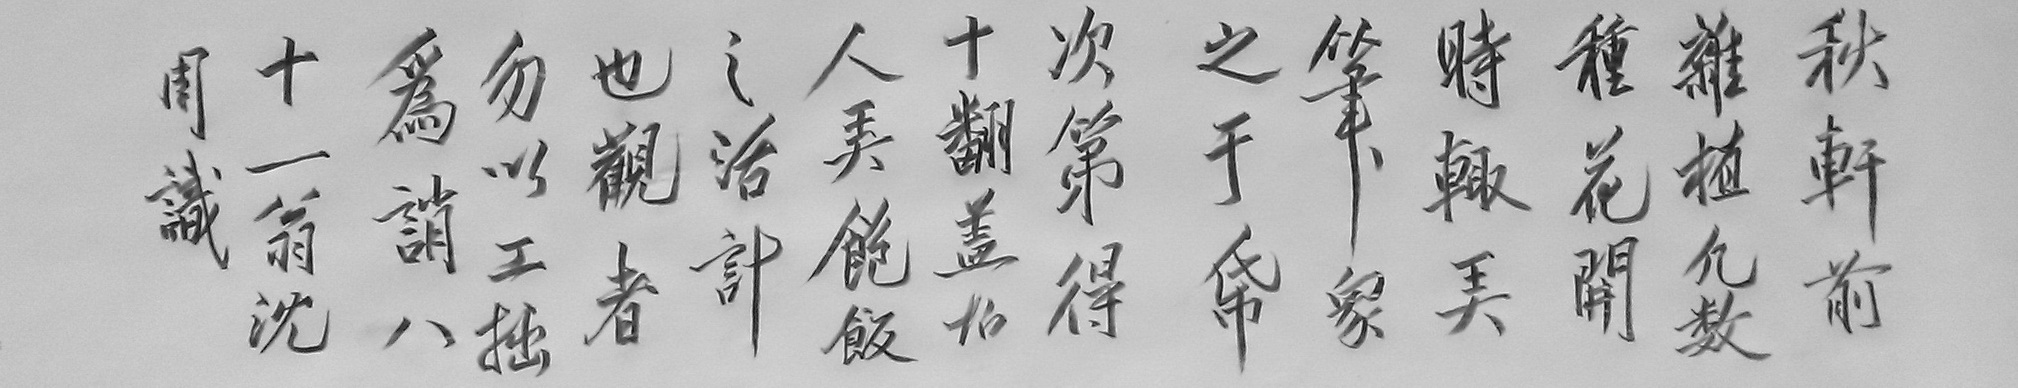 秋軒前
雜植凡数
種花開
時輙弄
筆象
之于㡀
次第得
十翻盖怡
人弄飽飯
之活計
也觀者
勿以工拙
爲誚八
十一翁沈
周識